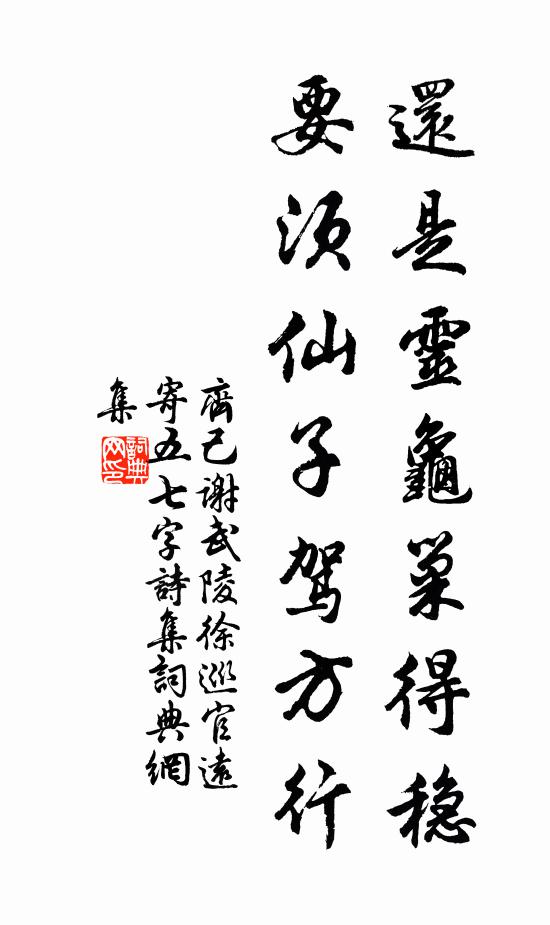 還是靈龜巢得穩
要須仙子駕方行
齊己謝武陵徐巡官遠
寄五七字詩集詞典網
集
詞典網印